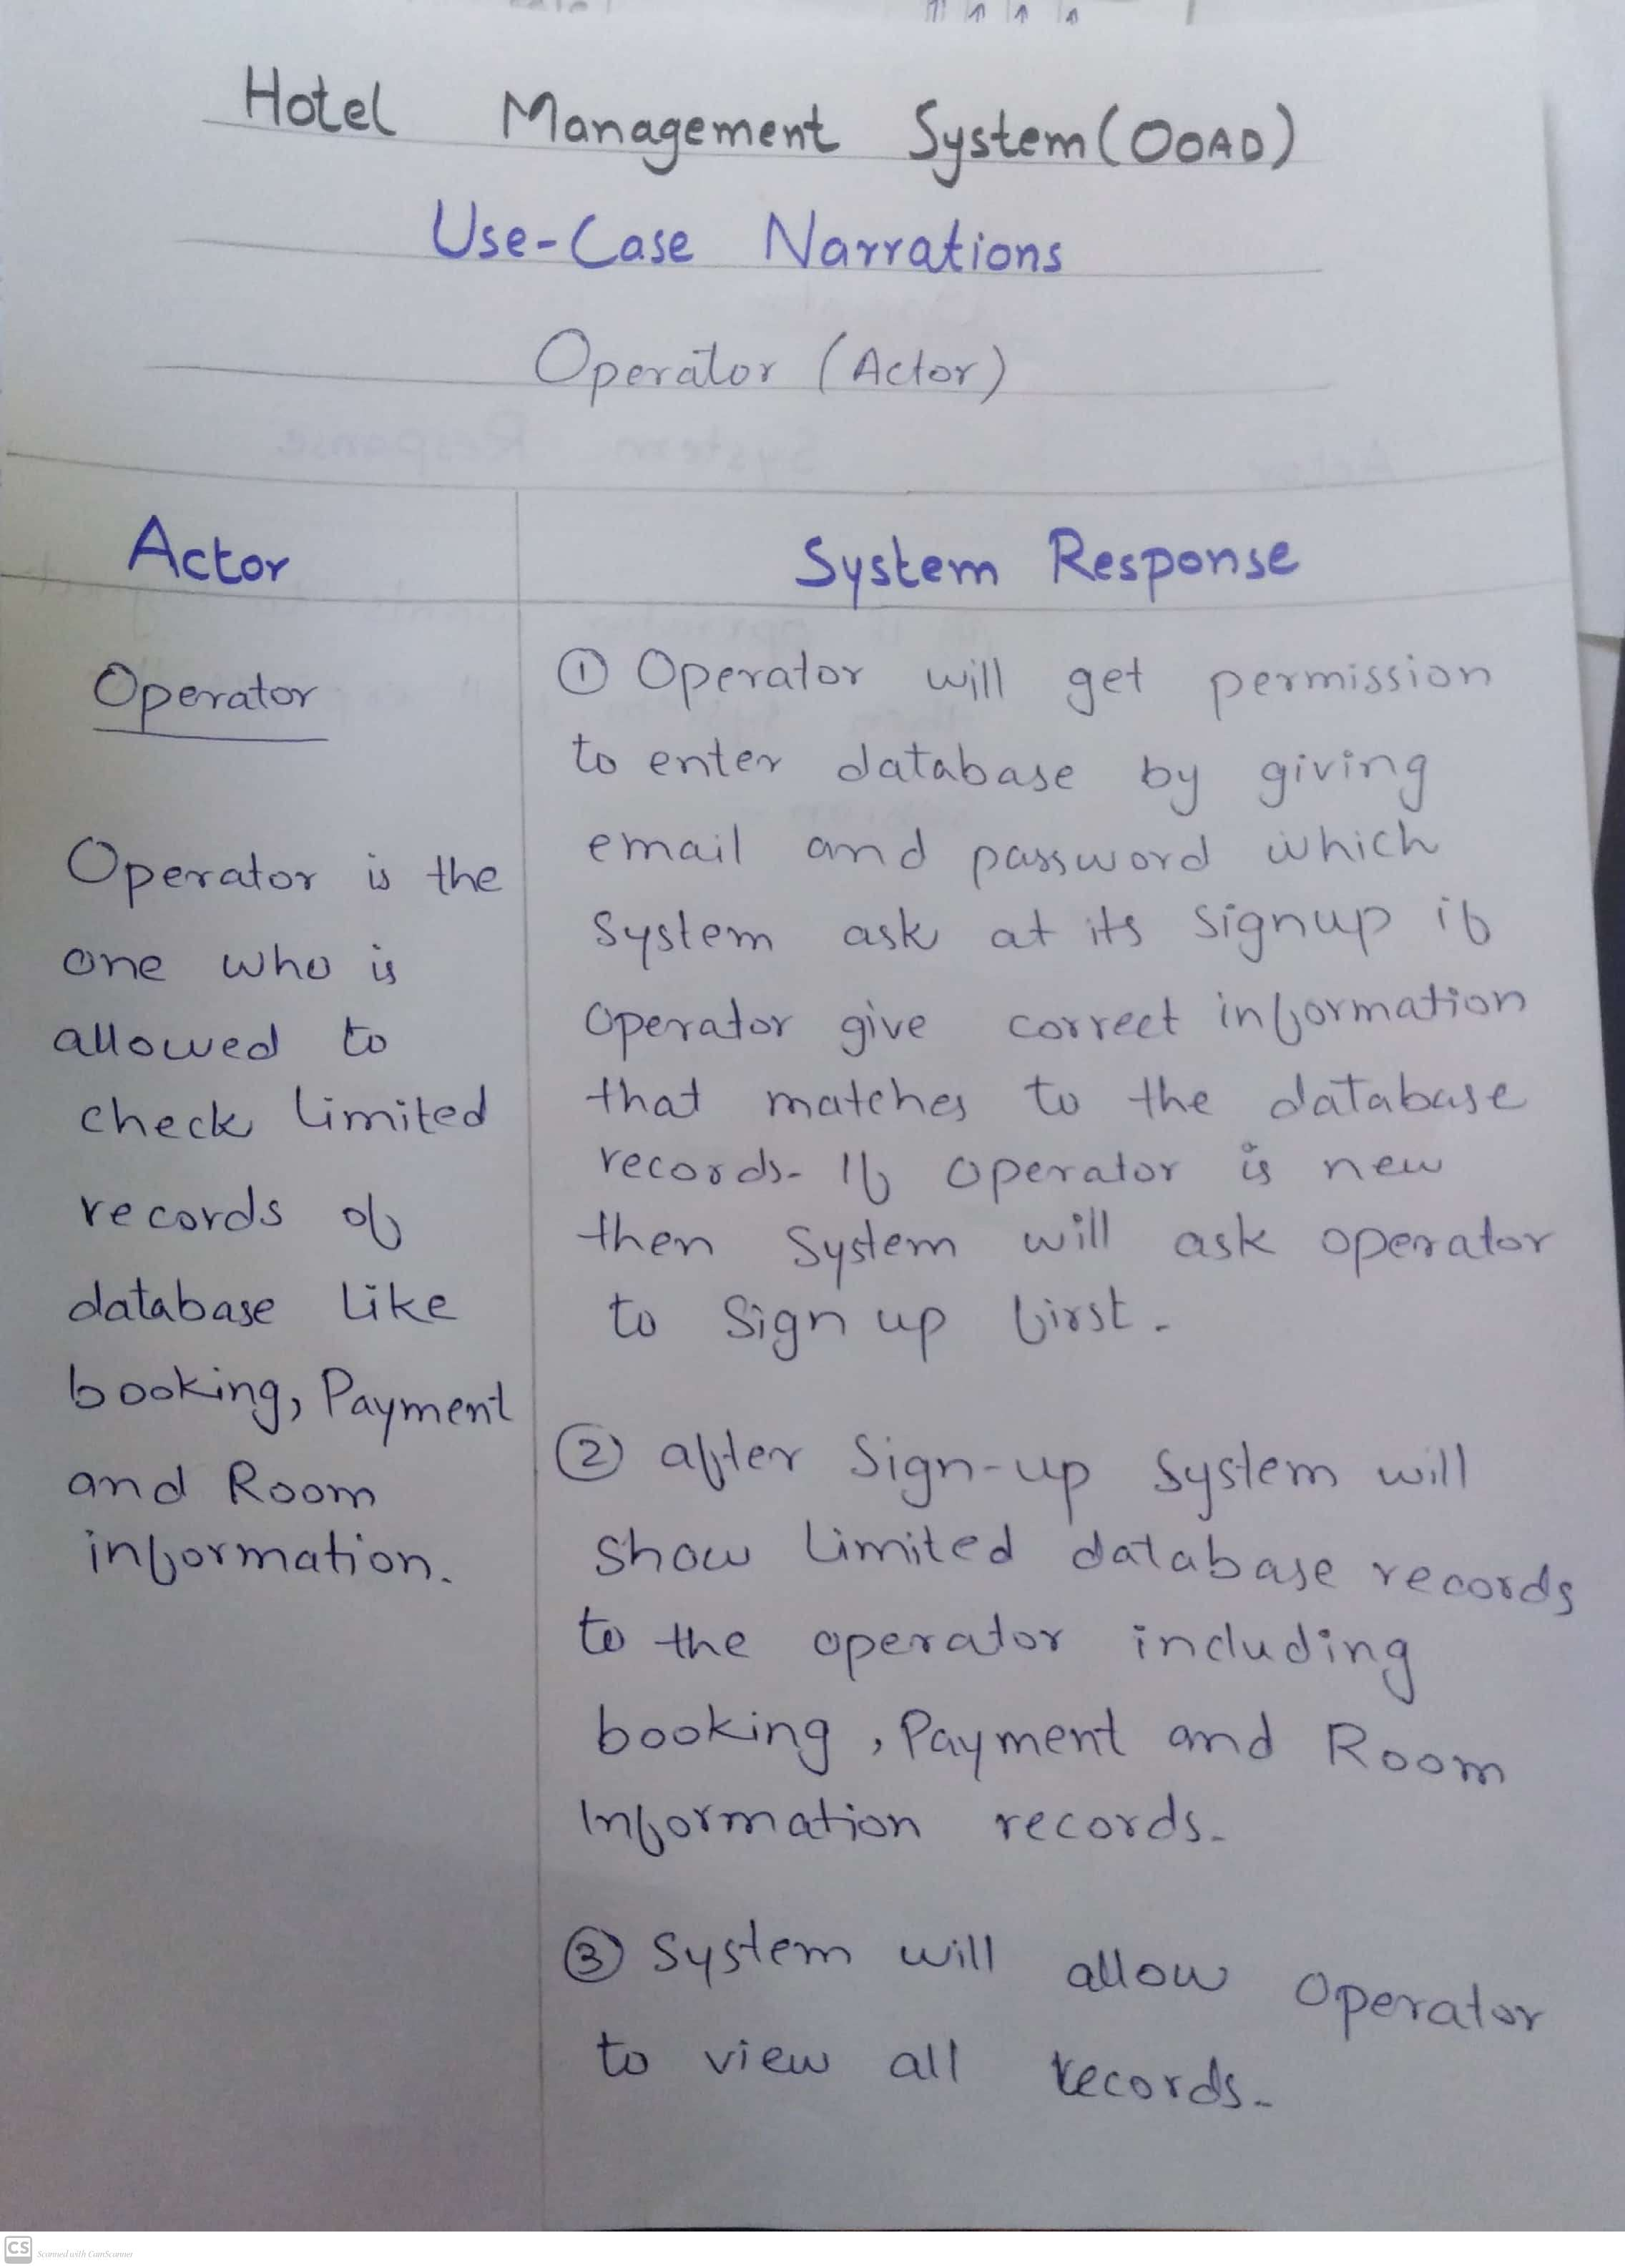 Hotel Management System (OOAD)
Use-Case Narrations
Operator (Actor)
Actor
System Response
Operator
Operator is the
one who is
allowed to
check limited
records of
database like
booking, Payment
and Room
information.
① Operator will get permission
to enter database by giving
email and password which
System ask at its signup if
operator give correct information
that matches to the database
records. If operator is new
then System will ask operator
to Sign up first.
② after Sign-up System will
show limited database records
to the operator including
booking, Payment and Room
Information records.
③ System will allow operator
to view all records.
CS Scanned with CamScanner